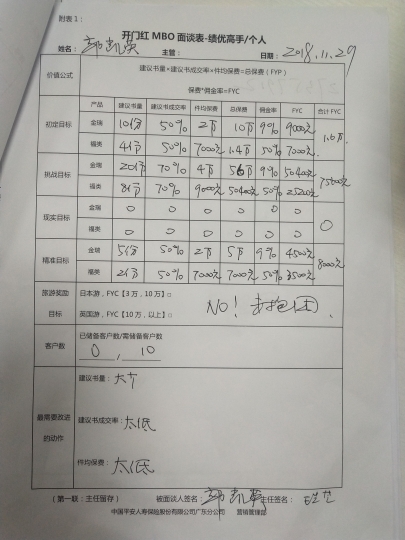 附表1：
开门红 MBO 面谈表-绩优高手/个人
姓名： 郭凯英 主管： 日期： 2018.11.29
价值公式 建议书量×建议书成交率×件均保费=总保费（FYP）
保费*佣金率=FYC
产品 建议书量 建议书成交率 件均保费 总保费 佣金率 FYC 合计FYC
初定目标 金瑞 10份 50% 2万 10万 9% 9000元 1.6万
福类 4份 50% 7000元 1.4万 50% 7000元
挑战目标 金瑞 20份 70% 4万 56万 9% 50400元 75600元
福类 8份 70% 9000元 50400元 50% 25200元
现实目标 金瑞 0 0 0 0 0 0 0
福类 0 0 0 0 0 0
精准目标 金瑞 5份 50% 2万 5万 9% 4500元 8000元
福类 2份 50% 7000元 7000元 50% 3500元
旅游奖励 日本游，FYC【3万，10万】□
目标 英国游，FYC【10万，以上】□
NO！
客户数 已储备客户数/需储备客户数
0 , 10
最需要改进的动作
建议书量： 太少
建议书成交率： 太低
件均保费： 太低
（第一联：主任留存） 被面谈人签名： 郭凯英 主任签名：
中国平安人寿保险股份有限公司广东分公司 营销管理部